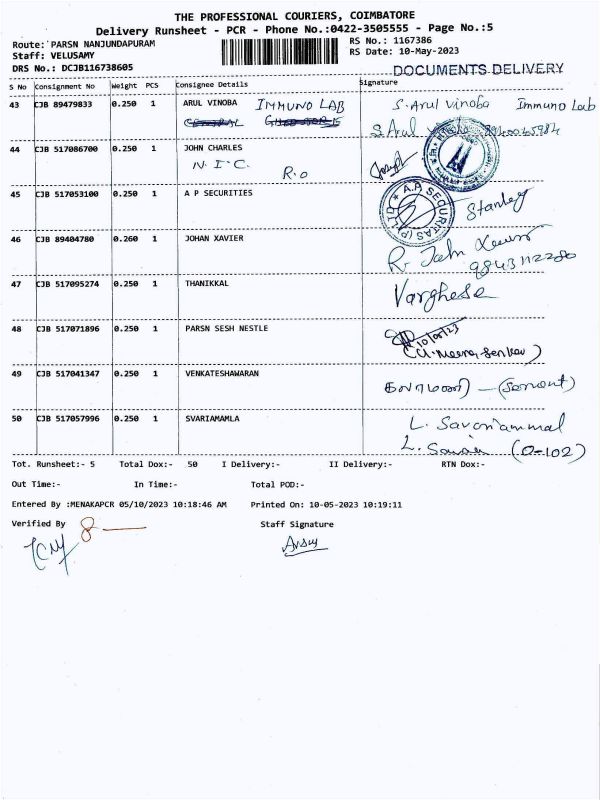 THE PROFESSIONAL COURIERS, COIMBATORE
Delivery Runsheet - PCR - Phone No.:0422-3505555 - Page No.:5
Route: PARSN NANJUNDAPURAM
RS No.: 1167386
Staff: VELUSAMY
RS Date: 10-May-2023
DRS No.: DCJB116738605
DOCUMENTS DELIVERY
S No Consignment No Weight PCS Consignee Details Signature
43 CJB 89479833 0.250 1 ARUL VINOBA IMMUNO LAB S. Arul Vinoba Immuno Lab
S. Arul
44 CJB 517086700 0.250 1 JOHN CHARLES
N.I.C. R.O Joseph
45 CJB 517053100 0.250 1 A P SECURITIES A.P. SECURITAS (P) LTD Stanley
46 CJB 89404780 0.260 1 JOHAN XAVIER R. John Xavier
9843112280
47 CJB 517095274 0.250 1 THANIKKAL Varghese
48 CJB 517071896 0.250 1 PARSN SESH NESTLE 10/05/23
49 CJB 517041347 0.250 1 VENKATESHAWARAN (Servent)
50 CJB 517057996 0.250 1 SVARIAMAMLA L. Savariammal
L. Savari (O-102)
Tot. Runsheet:- 5 Total Dox:- 50 I Delivery:- II Delivery:- RTN Dox:-
Out Time:- In Time:- Total POD:-
Entered By :MENAKAPCR 05/10/2023 10:18:46 AM Printed On: 10-05-2023 10:19:11
Verified By Staff Signature